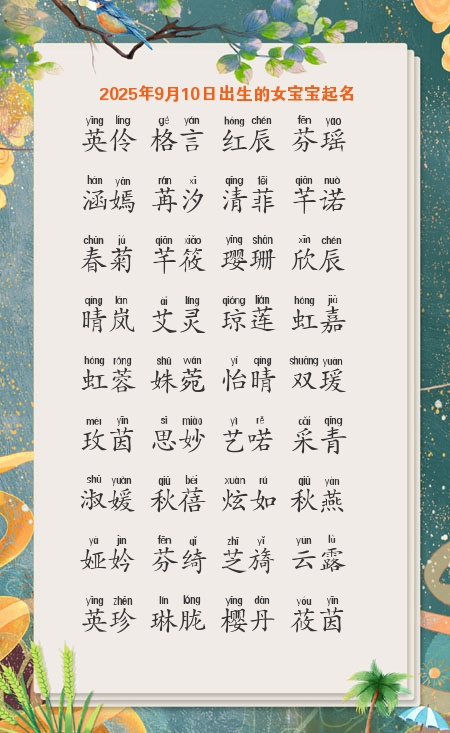 2025年9月10日出生的女宝宝起名
yīng líng gé yán hóng chén fēn yáo
英伶 格言 红辰 芬瑶
hán yān rán xī qīng fēi qiān nuò
涵嫣 苒汐 清菲 芊诺
chūn jú qiān xiǎo yīng shān xīn chén
春菊 芊筱 璎珊 欣辰
qíng lán ài líng qióng lián hóng jiā
晴岚 艾灵 琼莲 虹嘉
hóng róng shū wǎn yí qíng shuāng yuàn
虹蓉 姝菀 怡晴 双瑗
méi yīn sī miào yì rě cǎi qīng
玫茵 思妙 艺喏 采青
shū yuàn qiū bèi xuàn rú qiū yàn
淑媛 秋蓓 炫如 秋燕
yà jìn fēn qǐ zhī yǐ yún lù
娅妗 芬绮 芝旖 云露
yīng zhēn lín lóng yīng dān yóu yīn
英珍 琳胧 樱丹 莜茵